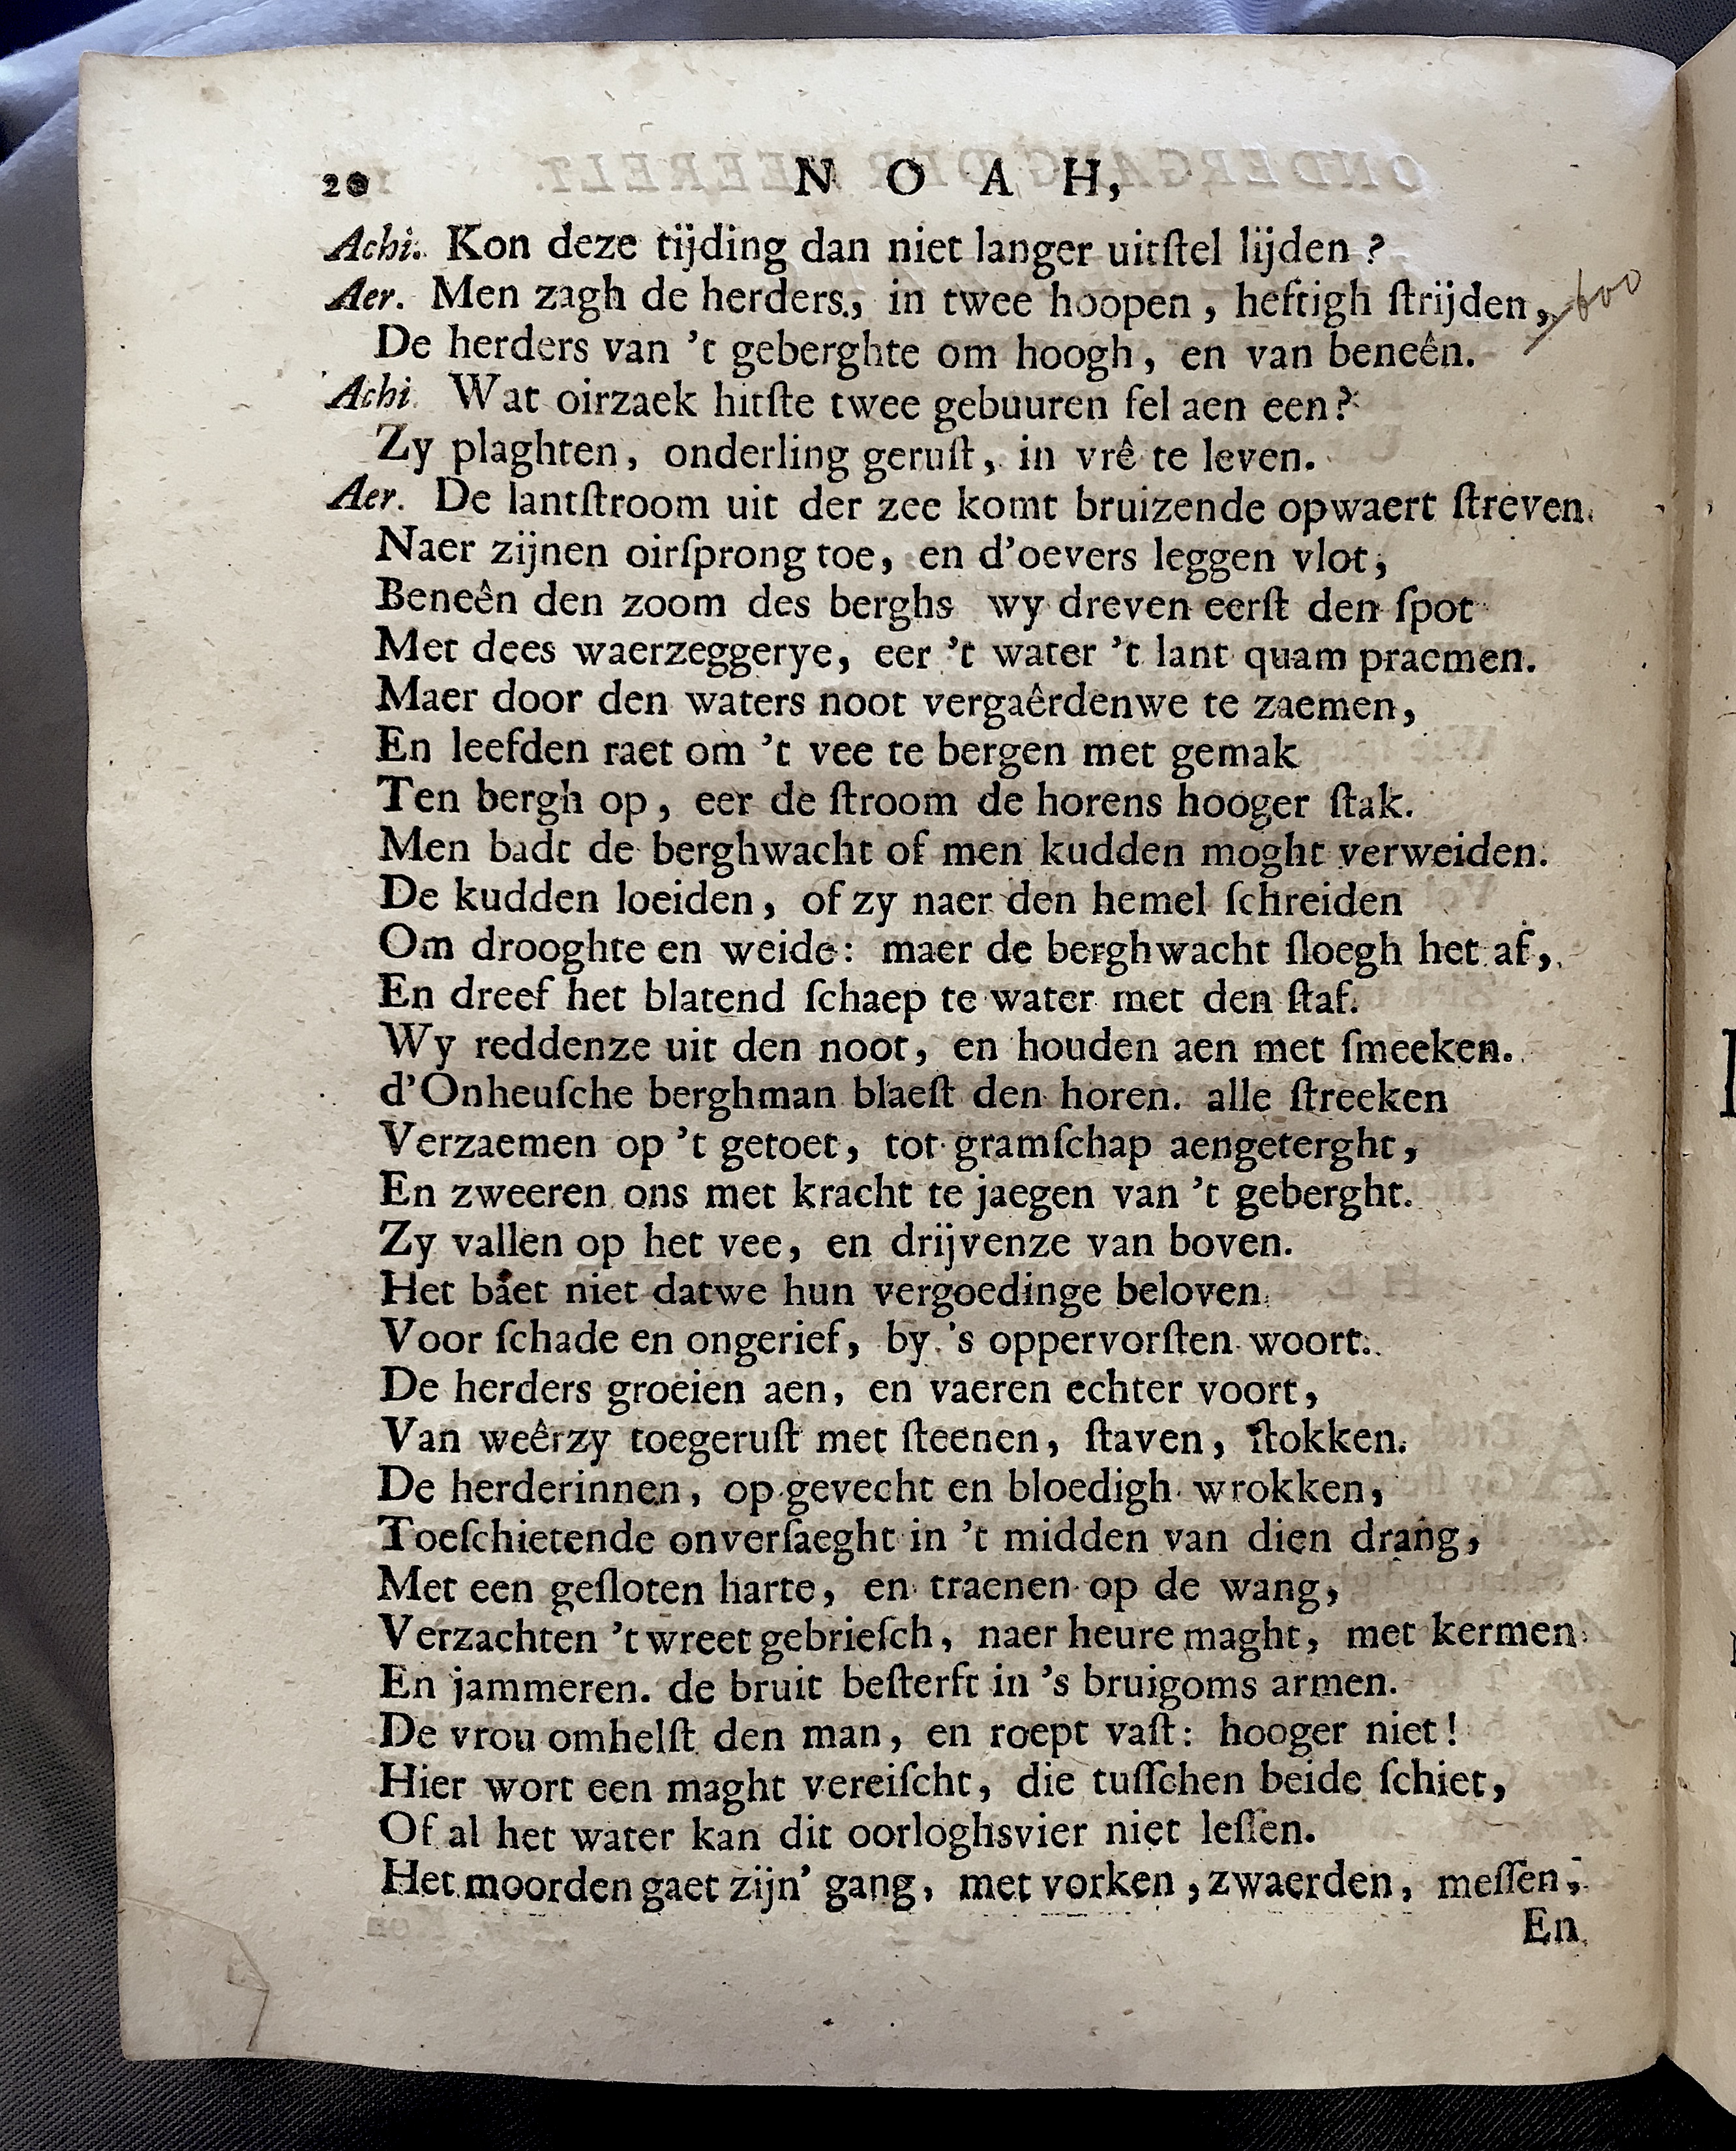 20 N O A H,
Achi. Kon deze tijding dan niet langer uitſtel lijden?
Aer. Men zagh de herders, in twee hoopen, heftigh ſtrijden, 600
De herders van 't geberghte om hoogh, en van beneên.
Achi. Wat oirzaek hitſte twee gebuuren fel aen een?
Zy plaghten, onderling geruſt, in vrê te leven.
Aer. De lantſtroom uit der zee komt bruizende opwaert ſtreven
Naer zijnen oirſprong toe, en d'oevers leggen vlot,
Beneên den zoom des berghs wy dreven eerſt den ſpot
Met dees waerzeggerye, eer 't water 't lant quam praemen.
Maer door den waters noot vergaêrdenwe te zaemen,
En leefden raet om 't vee te bergen met gemak
Ten bergh op, eer de ſtroom de horens hooger ſtak.
Men badt de berghwacht of men kudden moght verweiden.
De kudden loeiden, of zy naer den hemel ſchreiden
Om drooghte en weide: maer de berghwacht ſloegh het af,
En dreef het blatend ſchaep te water met den ſtaf.
Wy reddenze uit den noot, en houden aen met ſmeeken.
d'Onheuſche berghman blaeſt den horen. alle ſtreeken
Verzaemen op 't getoet, tot gramſchap aengeterght,
En zweeren ons met kracht te jaegen van 't geberght.
Zy vallen op het vee, en drijvenze van boven.
Het baet niet datwe hun vergoedinge beloven
Voor ſchade en ongerief, by 's oppervorſten woort.
De herders groeien aen, en vaeren echter voort,
Van weêrzy toegeruſt met ſteenen, ſtaven, ſtokken.
De herderinnen, op gevecht en bloedigh wrokken,
Toeſchietende onverſaeght in 't midden van dien drang,
Met een geſloten harte, en traenen op de wang,
Verzachten 't wreet gebrieſch, naer heure maght, met kermen
En jammeren. de bruit beſterft in 's bruigoms armen.
De vrou omhelſt den man, en roept vaſt: hooger niet!
Hier wort een maght vereiſcht, die tuſſchen beide ſchiet,
Of al het water kan dit oorloghsvier niet leſſen.
Het moorden gaet zijn' gang, met vorken, zwaerden, meſſen,
En